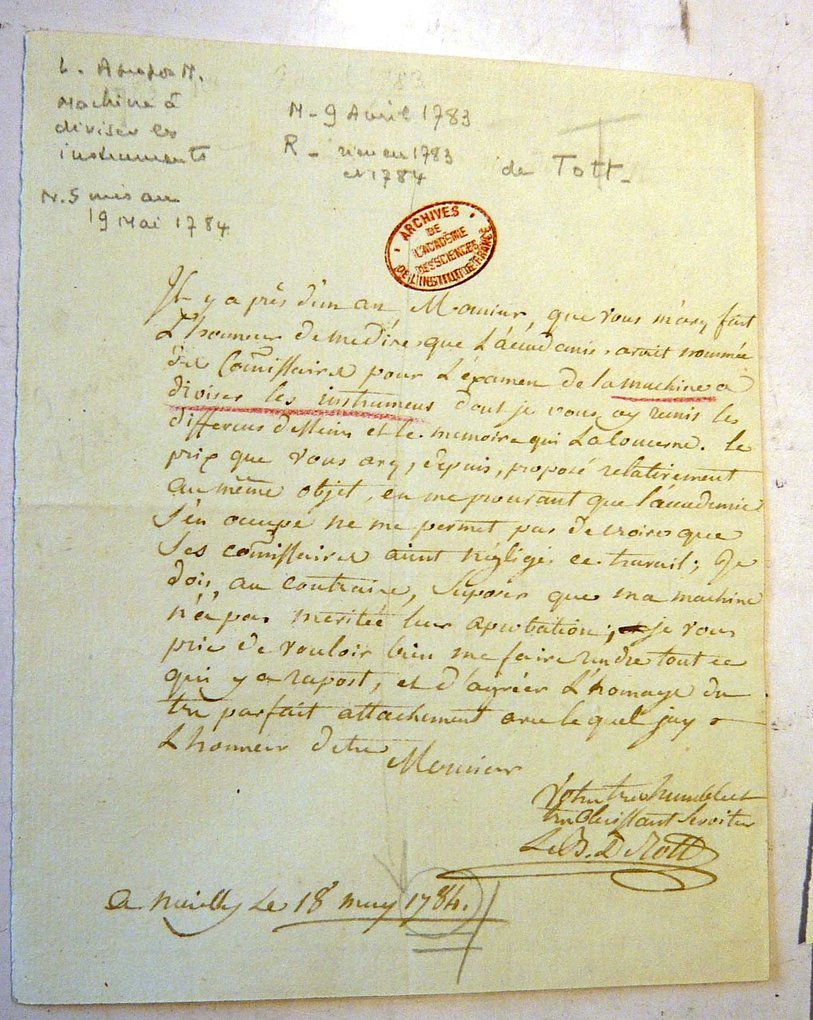 L. A propos M.
Machine à
diviser les
instruments
N. S mis au
19 Mai 1784
M - 9 Avril 1783
R - rien en 1783
et 1784
de Tott -
ARCHIVES
DE
L'ACADÉMIE
DES SCIENCES
DE L'INSTITUT DE FRANCE
Il y a près d'un an, Monsieur, que vous m'avez fait
L'honneur de me dire que L'accadamie avait nommée
des Commissaires pour L'éxamen de la machine a
diviser les instrumens dont je vous ay remis les
differens desseins et le memoire qui La Concerne. le
prix que vous avez, depuis, proposé relativement
au même objet, en me prouvant que l'accademie
s'en occupe ne me permet pas de croire que
ses comissaires aient négligé ce travail; Je
dois, au contraire, suposer que ma machine
n'a pas meritée leur aprobation; je vous
prie de vouloir bien me faire rendre tout ce
qui y a raport, et d'agréer L'homage du
tres parfait attachement avec le quel j'ay
L'honneur d'etre
Monsieur
Votre tres humble et
tres obeissant Serviteur
Le B. De Tott
a neuilly Le 18 may 1784.